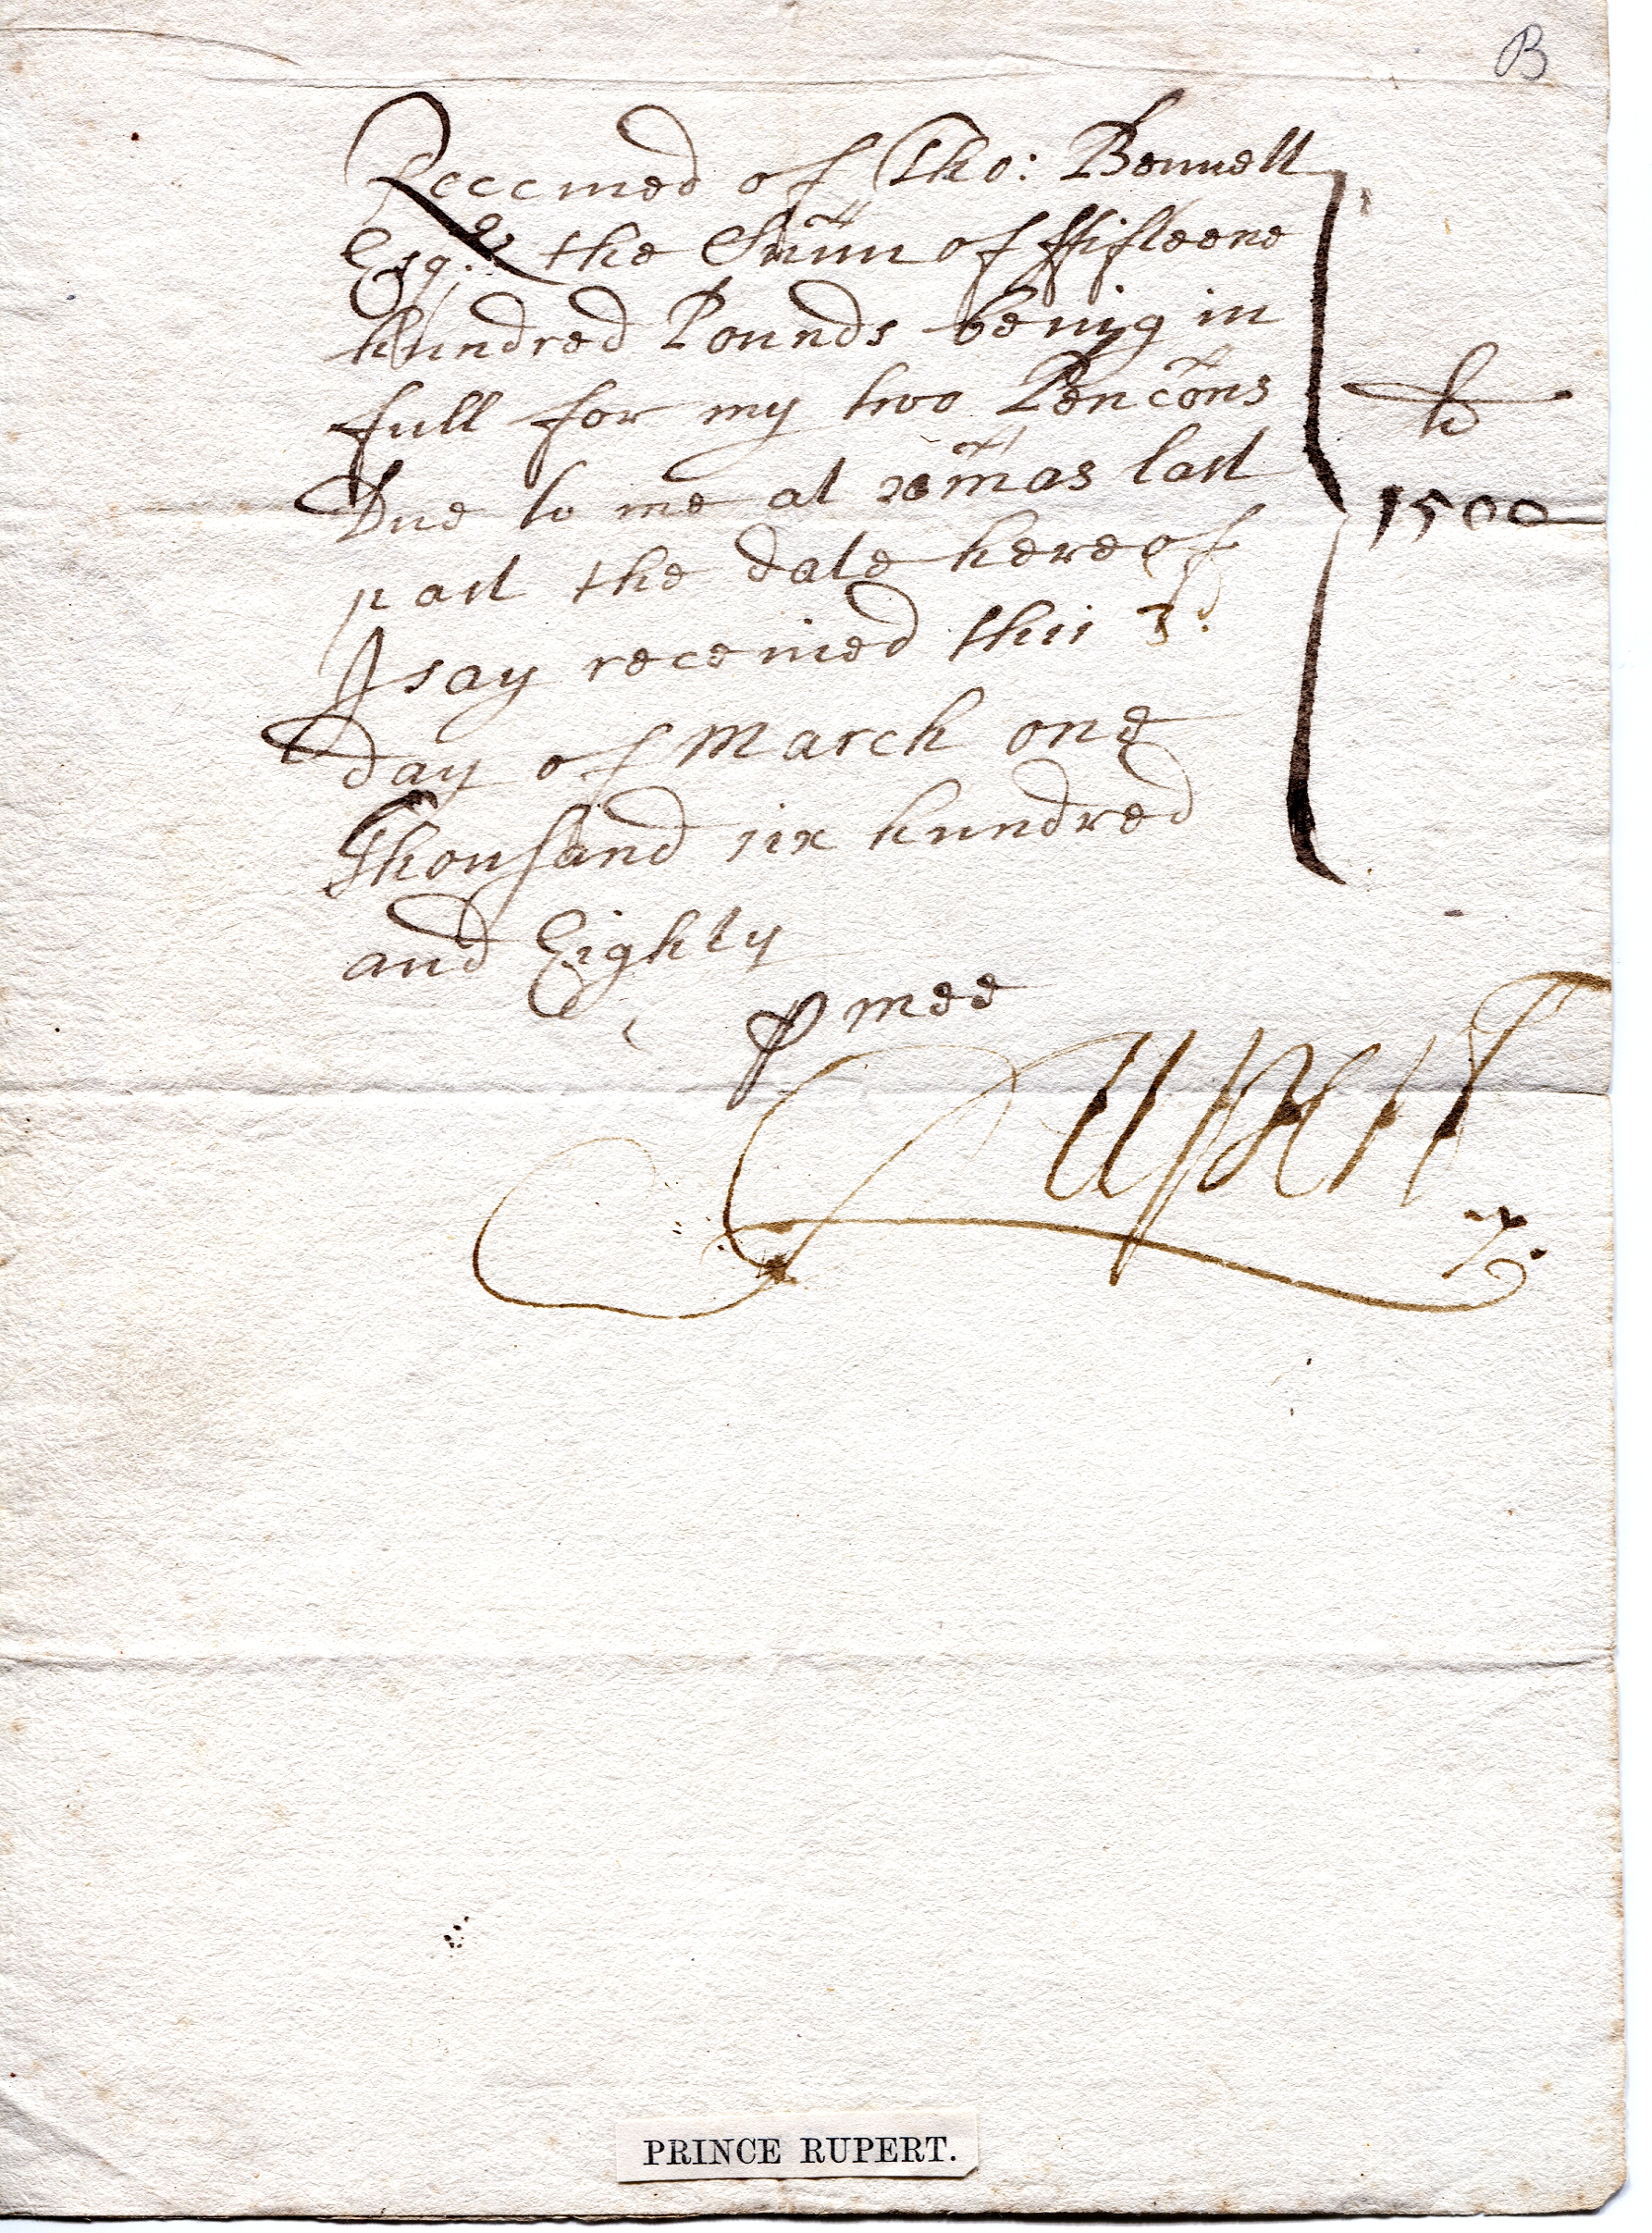 B
Receiued of Tho: Bennett
Esqr. the Sum̃ of ffifteene
hundred Pounds being in
full for my two Penc̃ons
Due to me at xp̃mas last
past the date hereof
I say receiued this 3d.
day of March one
Thousand six hundred
and Eighty
li
1500
P mee
Rupert
PRINCE RUPERT.